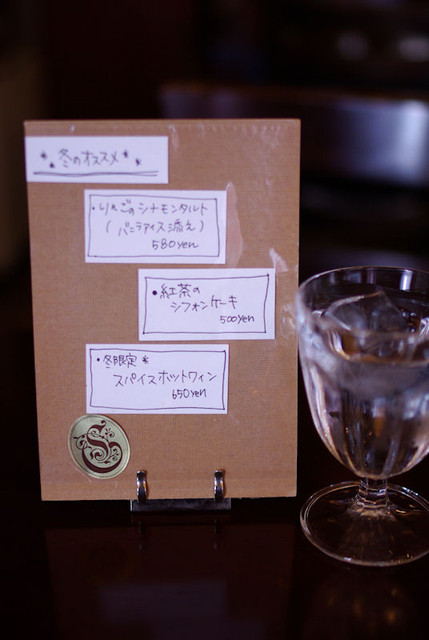 冬のオススメ
・りんごのシナモンタルト
(バニラアイス添え)
580yen
・紅茶の
シフォンケーキ
500yen
・冬限定*
スパイスホットワイン
650yen
S